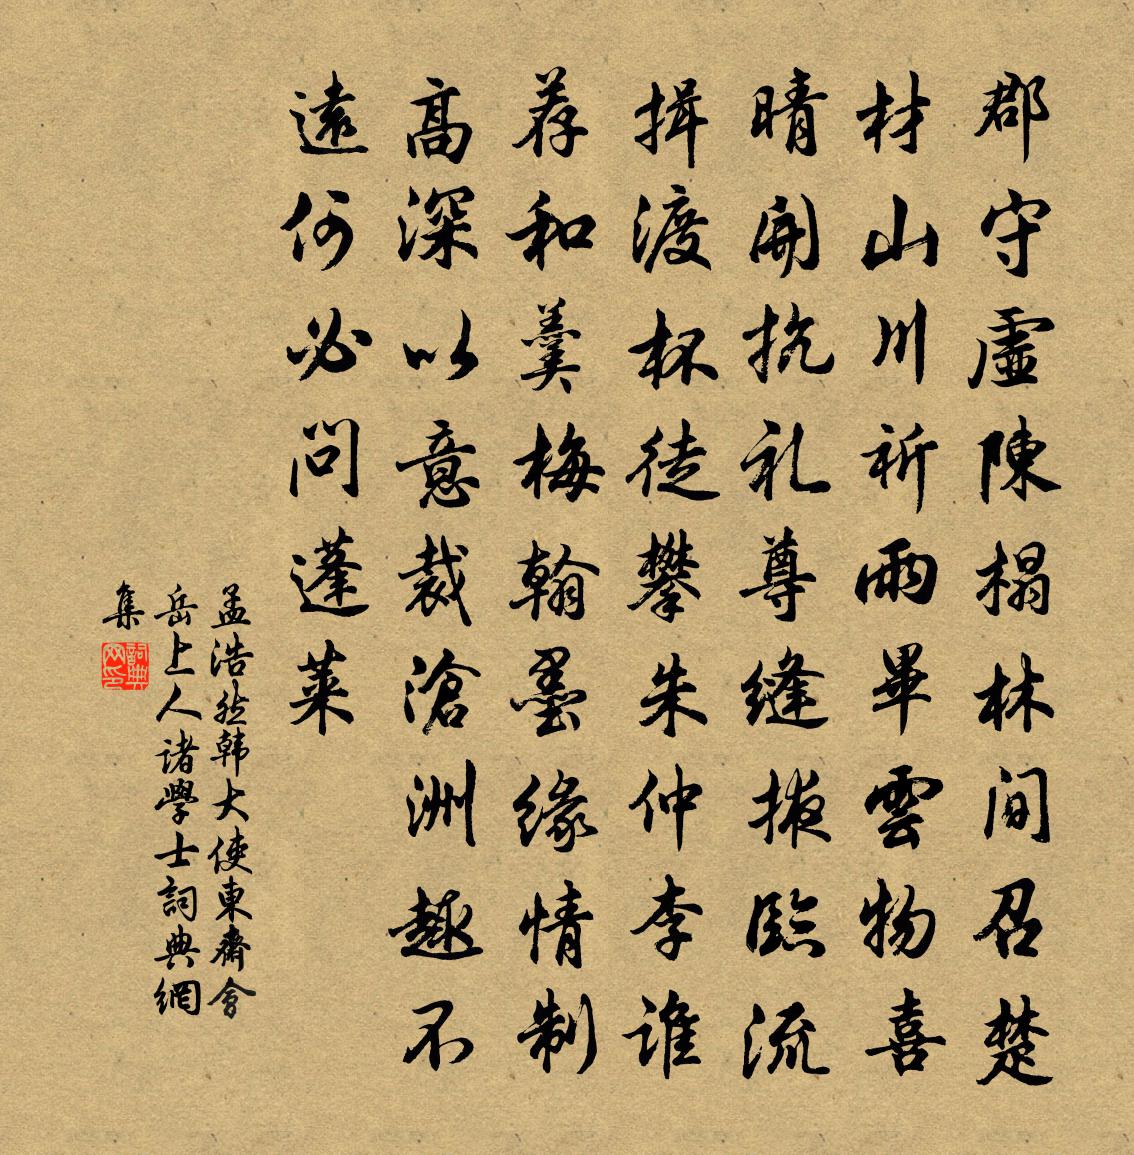 郡守虛陳榻林間召楚
材山川祈雨畢雲物喜
晴開抗礼尊縫掖臨流
揖渡杯徒攀朱仲李誰
荐和羹梅翰墨緣情制
高深以意裁滄洲趣不
遠何必問蓬萊
孟浩然韩大使東齋會
岳上人诸學士詞典網
集
詞典网印